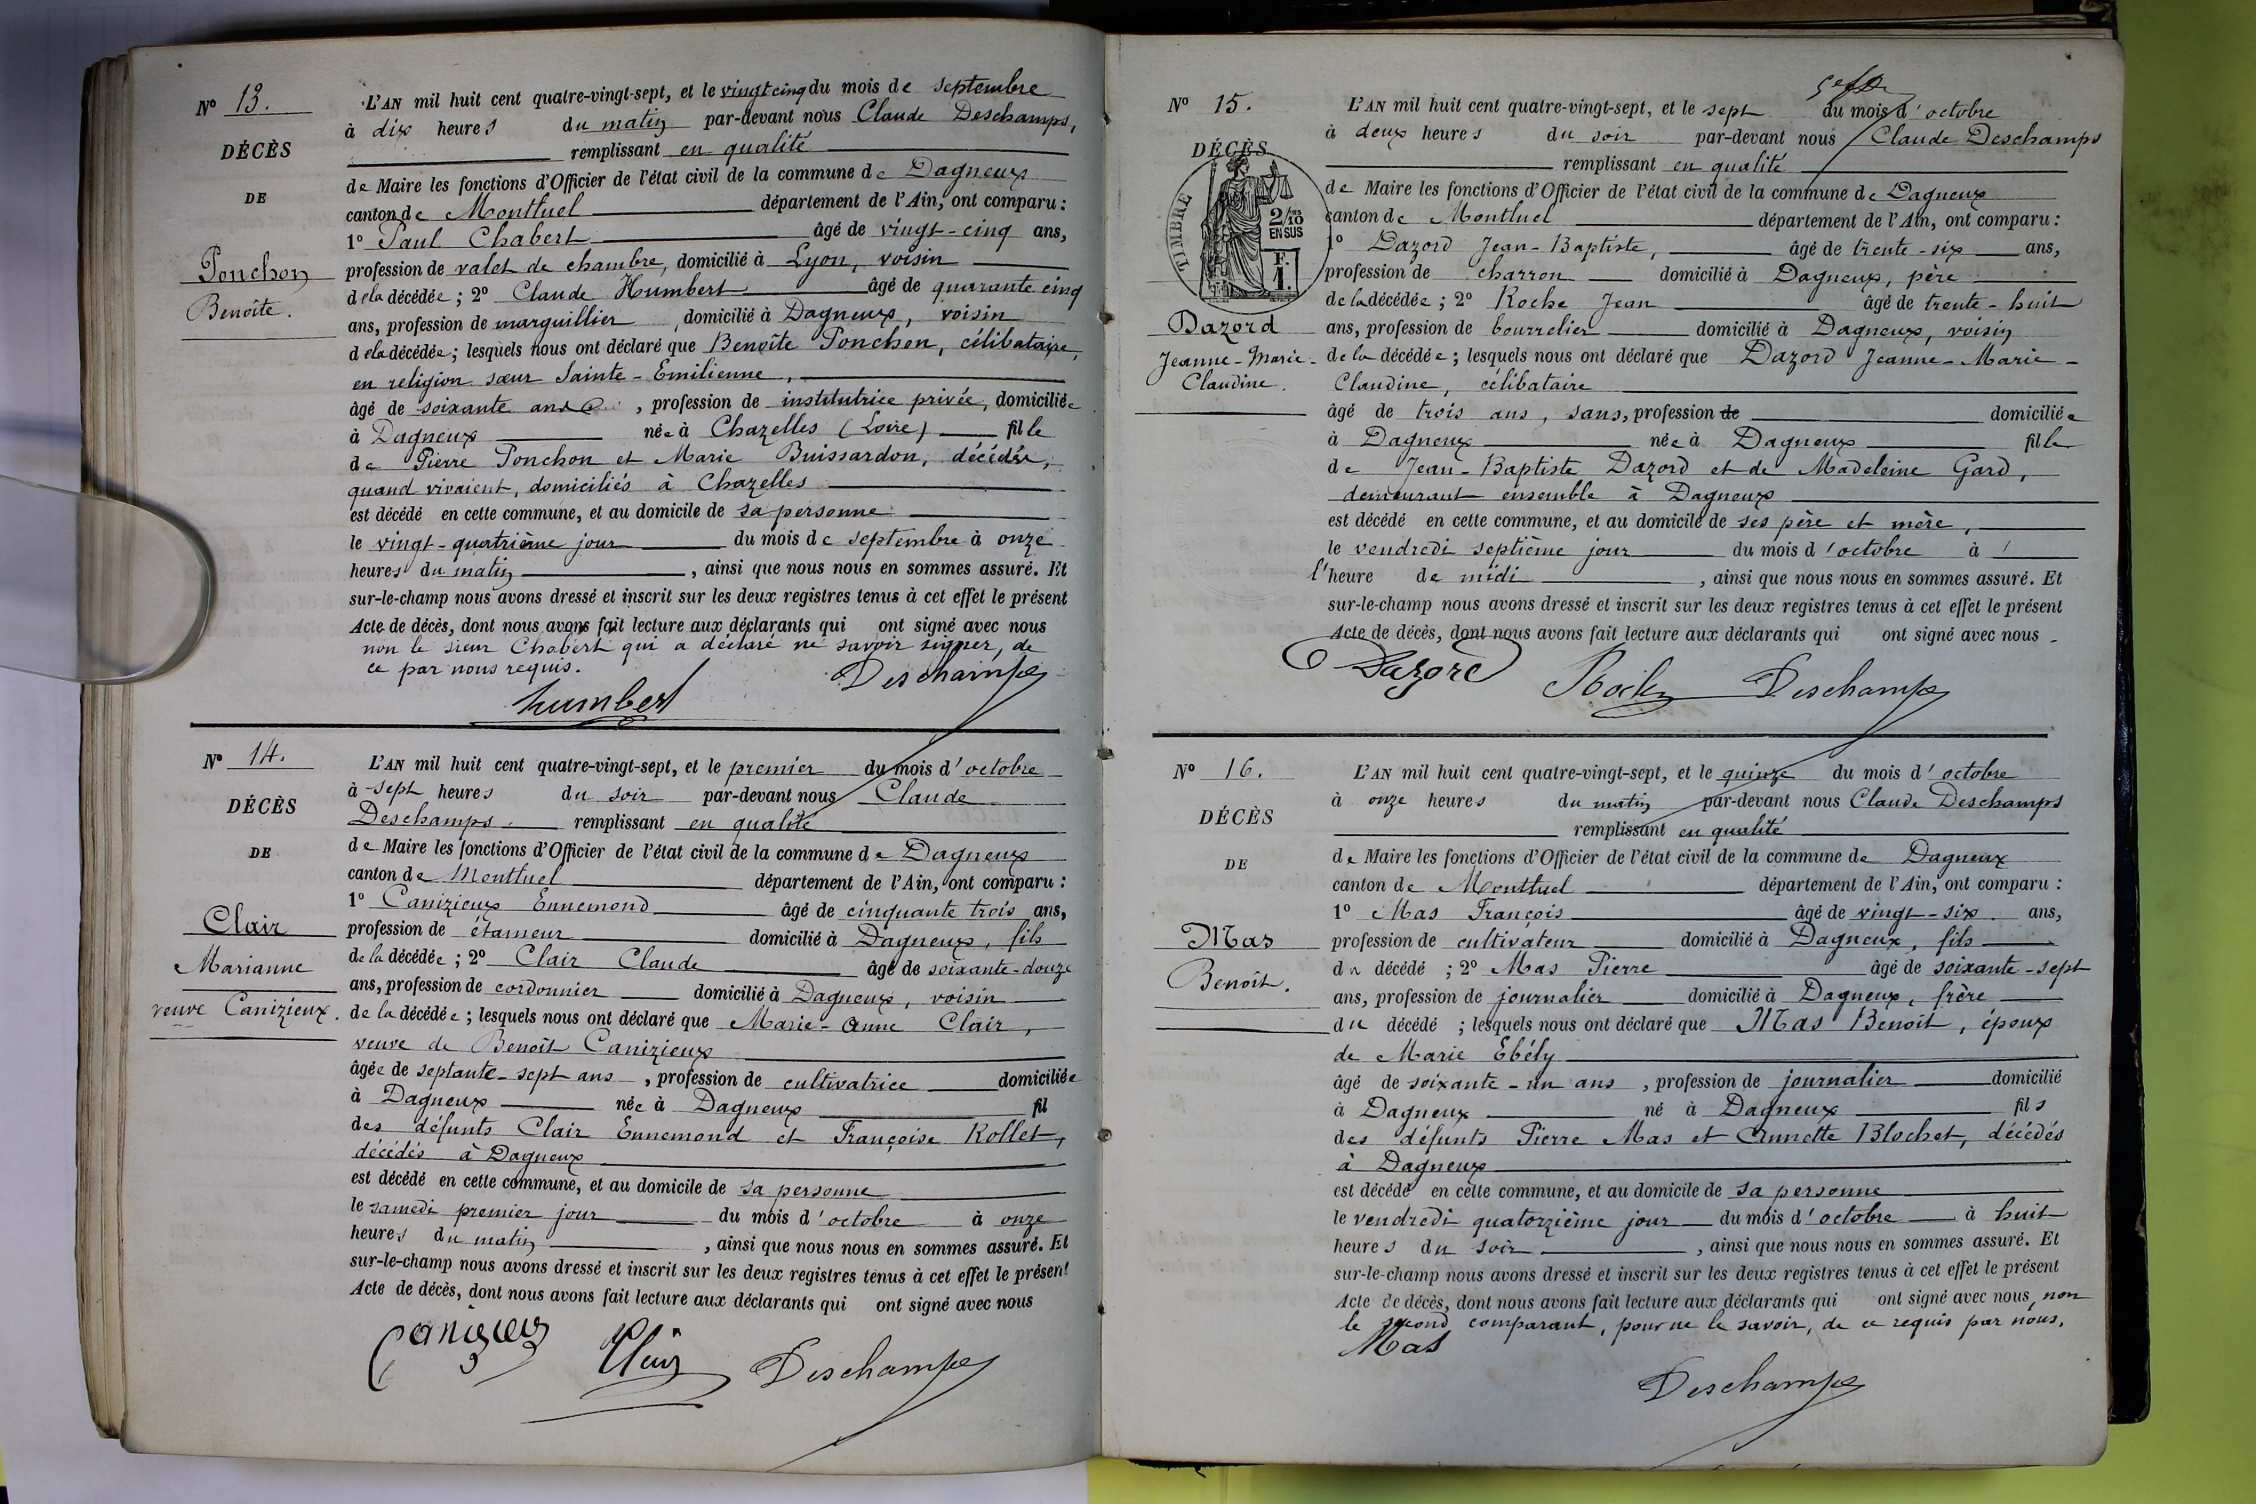 Nº 13.
DÉCÈS
DE
Ponchon
Benoîte.
L'AN mil huit cent quatre-vingt-sept, et le vingt cinq du mois de septembre
à dix heures du matin par-devant nous Claude Deschamps,
remplissant en qualité
de Maire les fonctions d'Officier de l'état civil de la commune de Dagneux
canton de Montluel département de l'Ain, ont comparu :
1º Paul Chabert âgé de vingt-cinq ans,
profession de valet de chambre, domicilié à Lyon, voisin
de la décédée ; 2º Claude Humbert âgé de quarante cinq
ans, profession de marguillier, domicilié à Dagneux, voisin
de la décédée ; lesquels nous ont déclaré que Benoîte Ponchon, célibataire,
en religion sœur Sainte-Emilienne,
âgé de soixante ans, profession de institutrice privée, domiciliée
à Dagneux née à Chazelles (Loire) fille
de Pierre Ponchon et Marie Buissardon, décédés,
quand vivaient, domiciliés à Chazelles
est décédé en cette commune, et au domicile de sa personne
le vingt-quatrième jour du mois de septembre à onze
heures du matin, ainsi que nous nous en sommes assuré. Et
sur-le-champ nous avons dressé et inscrit sur les deux registres tenus à cet effet le présent
Acte de décès, dont nous avons fait lecture aux déclarants qui ont signé avec nous
non le sieur Chabert qui a déclaré ne savoir signer, de
ce par nous requis.
humbert Deschamps
Nº 14.
DÉCÈS
DE
Clair
Marianne
veuve Canizieux.
L'AN mil huit cent quatre-vingt-sept, et le premier du mois d'octobre
à sept heures du soir par-devant nous Claude
Deschamps remplissant en qualité
de Maire les fonctions d'Officier de l'état civil de la commune de Dagneux
canton de Montluel département de l'Ain, ont comparu :
1º Canizieux Ennemond âgé de cinquante trois ans,
profession de étameur domicilié à Dagneux, fils
de la décédée ; 2º Clair Claude âgé de soixante-douze
ans, profession de cordonnier domicilié à Dagneux, voisin
de la décédée ; lesquels nous ont déclaré que Marie-Anne Clair,
veuve de Benoît Canizieux
âgée de septante-sept ans, profession de cultivatrice domiciliée
à Dagneux née à Dagneux fil
des défunts Clair Ennemond et Françoise Rollet,
décédés à Dagneux
est décédé en cette commune, et au domicile de sa personne
le samedi premier jour du mois d'octobre à onze
heures du matin, ainsi que nous nous en sommes assuré. Et
sur-le-champ nous avons dressé et inscrit sur les deux registres tenus à cet effet le présent
Acte de décès, dont nous avons fait lecture aux déclarants qui ont signé avec nous
Canizieux Clair Deschamps
Nº 15.
DÉCÈS
TIMBRE
2/10es
EN SUS
F.
1.
Dazord
Jeanne-Marie-
Claudine.
L'AN mil huit cent quatre-vingt-sept, et le sept du mois d'octobre
à deux heures du soir par-devant nous Claude Deschamps
remplissant en qualité
de Maire les fonctions d'Officier de l'état civil de la commune de Dagneux
canton de Montluel département de l'Ain, ont comparu :
1º Dazord Jean-Baptiste, âgé de trente-six ans,
profession de charron domicilié à Dagneux, père
de la décédée ; 2º Roche Jean âgé de trente-huit
ans, profession de bourrelier domicilié à Dagneux, voisin
de la décédée ; lesquels nous ont déclaré que Dazord Jeanne-Marie-
Claudine, célibataire
âgé de trois ans, sans, profession de domiciliée
à Dagneux née à Dagneux fille
de Jean-Baptiste Dazord et de Madeleine Gard,
demeurant ensemble à Dagneux
est décédé en cette commune, et au domicile de ses père et mère,
le vendredi septième jour du mois d'octobre à
l'heure de midi, ainsi que nous nous en sommes assuré. Et
sur-le-champ nous avons dressé et inscrit sur les deux registres tenus à cet effet le présent
Acte de décès, dont nous avons fait lecture aux déclarants qui ont signé avec nous
Dazord Roche Deschamps
Nº 16.
DÉCÈS
DE
Mas
Benoît.
L'AN mil huit cent quatre-vingt-sept, et le quinze du mois d'octobre
à onze heures du matin par-devant nous Claude Deschamps
remplissant en qualité
de Maire les fonctions d'Officier de l'état civil de la commune de Dagneux
canton de Montluel département de l'Ain, ont comparu :
1º Mas François âgé de vingt-six ans,
profession de cultivateur domicilié à Dagneux, fils
du décédé ; 2º Mas Pierre âgé de soixante-sept
ans, profession de journalier domicilié à Dagneux, frère
du décédé ; lesquels nous ont déclaré que Mas Benoît, époux
de Marie Ebély
âgé de soixante-un ans, profession de journalier domicilié
à Dagneux né à Dagneux fils
des défunts Pierre Mas et Annette Blochet, décédés
à Dagneux
est décédé en cette commune, et au domicile de sa personne
le vendredi quatorzième jour du mois d'octobre à huit
heures du soir, ainsi que nous nous en sommes assuré. Et
sur-le-champ nous avons dressé et inscrit sur les deux registres tenus à cet effet le présent
Acte de décès, dont nous avons fait lecture aux déclarants qui ont signé avec nous, non
le second comparant, pour ne le savoir, de ce requis par nous.
Mas
Deschamps